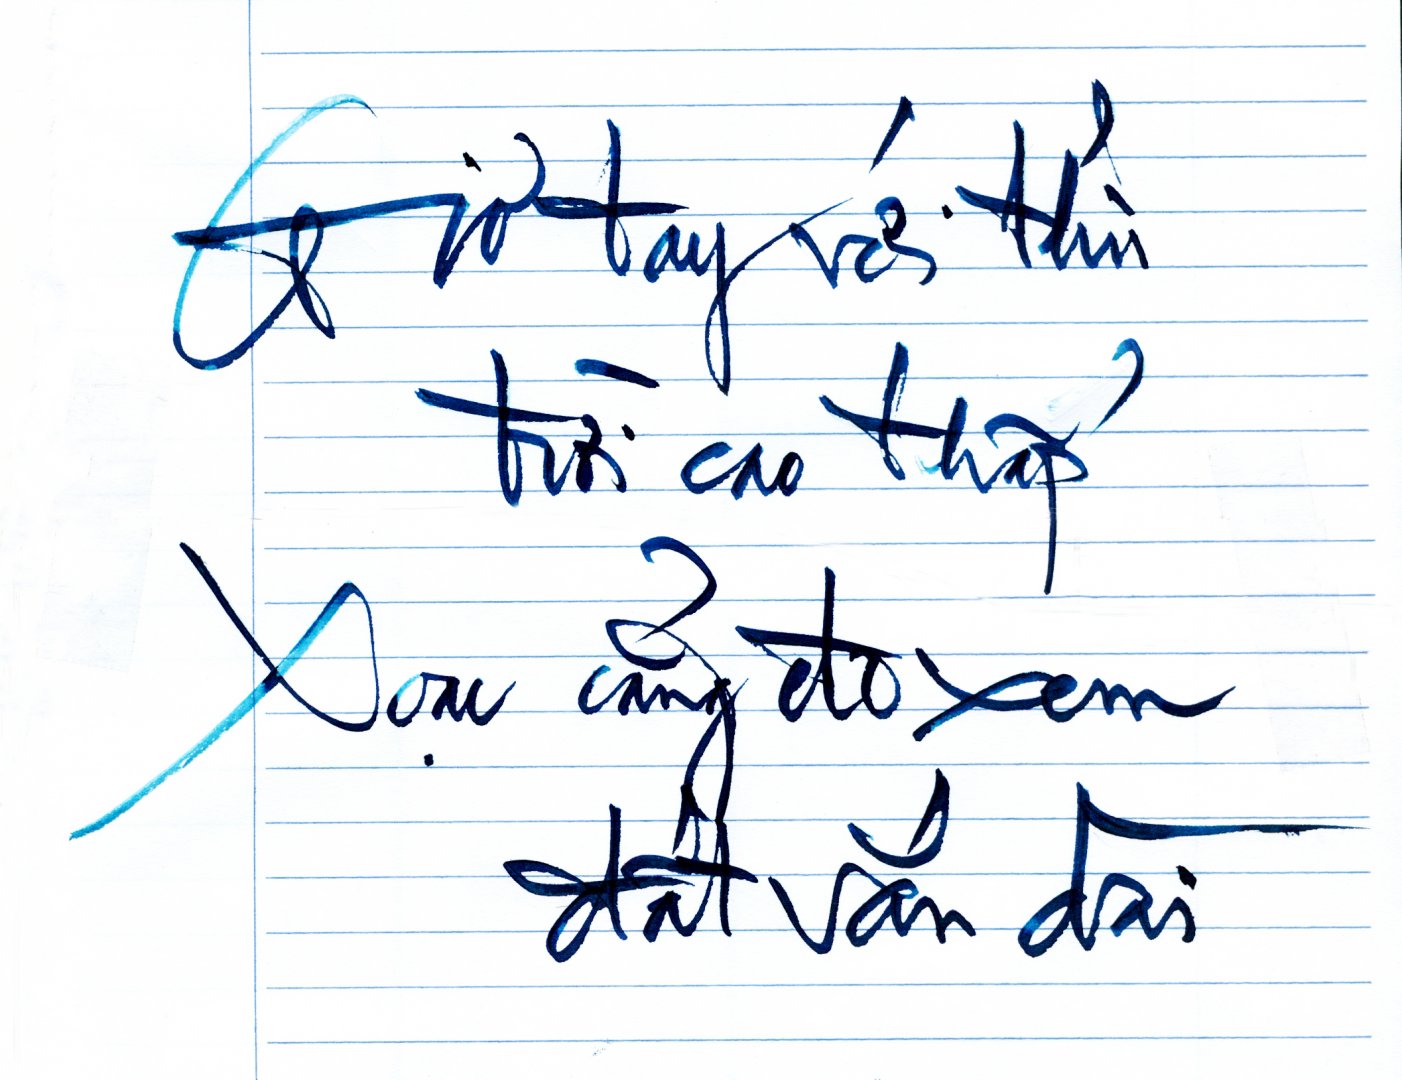 Giơ tay với thử
trời cao thấp
Xoạc cẳng đo xem
đất vắn dài